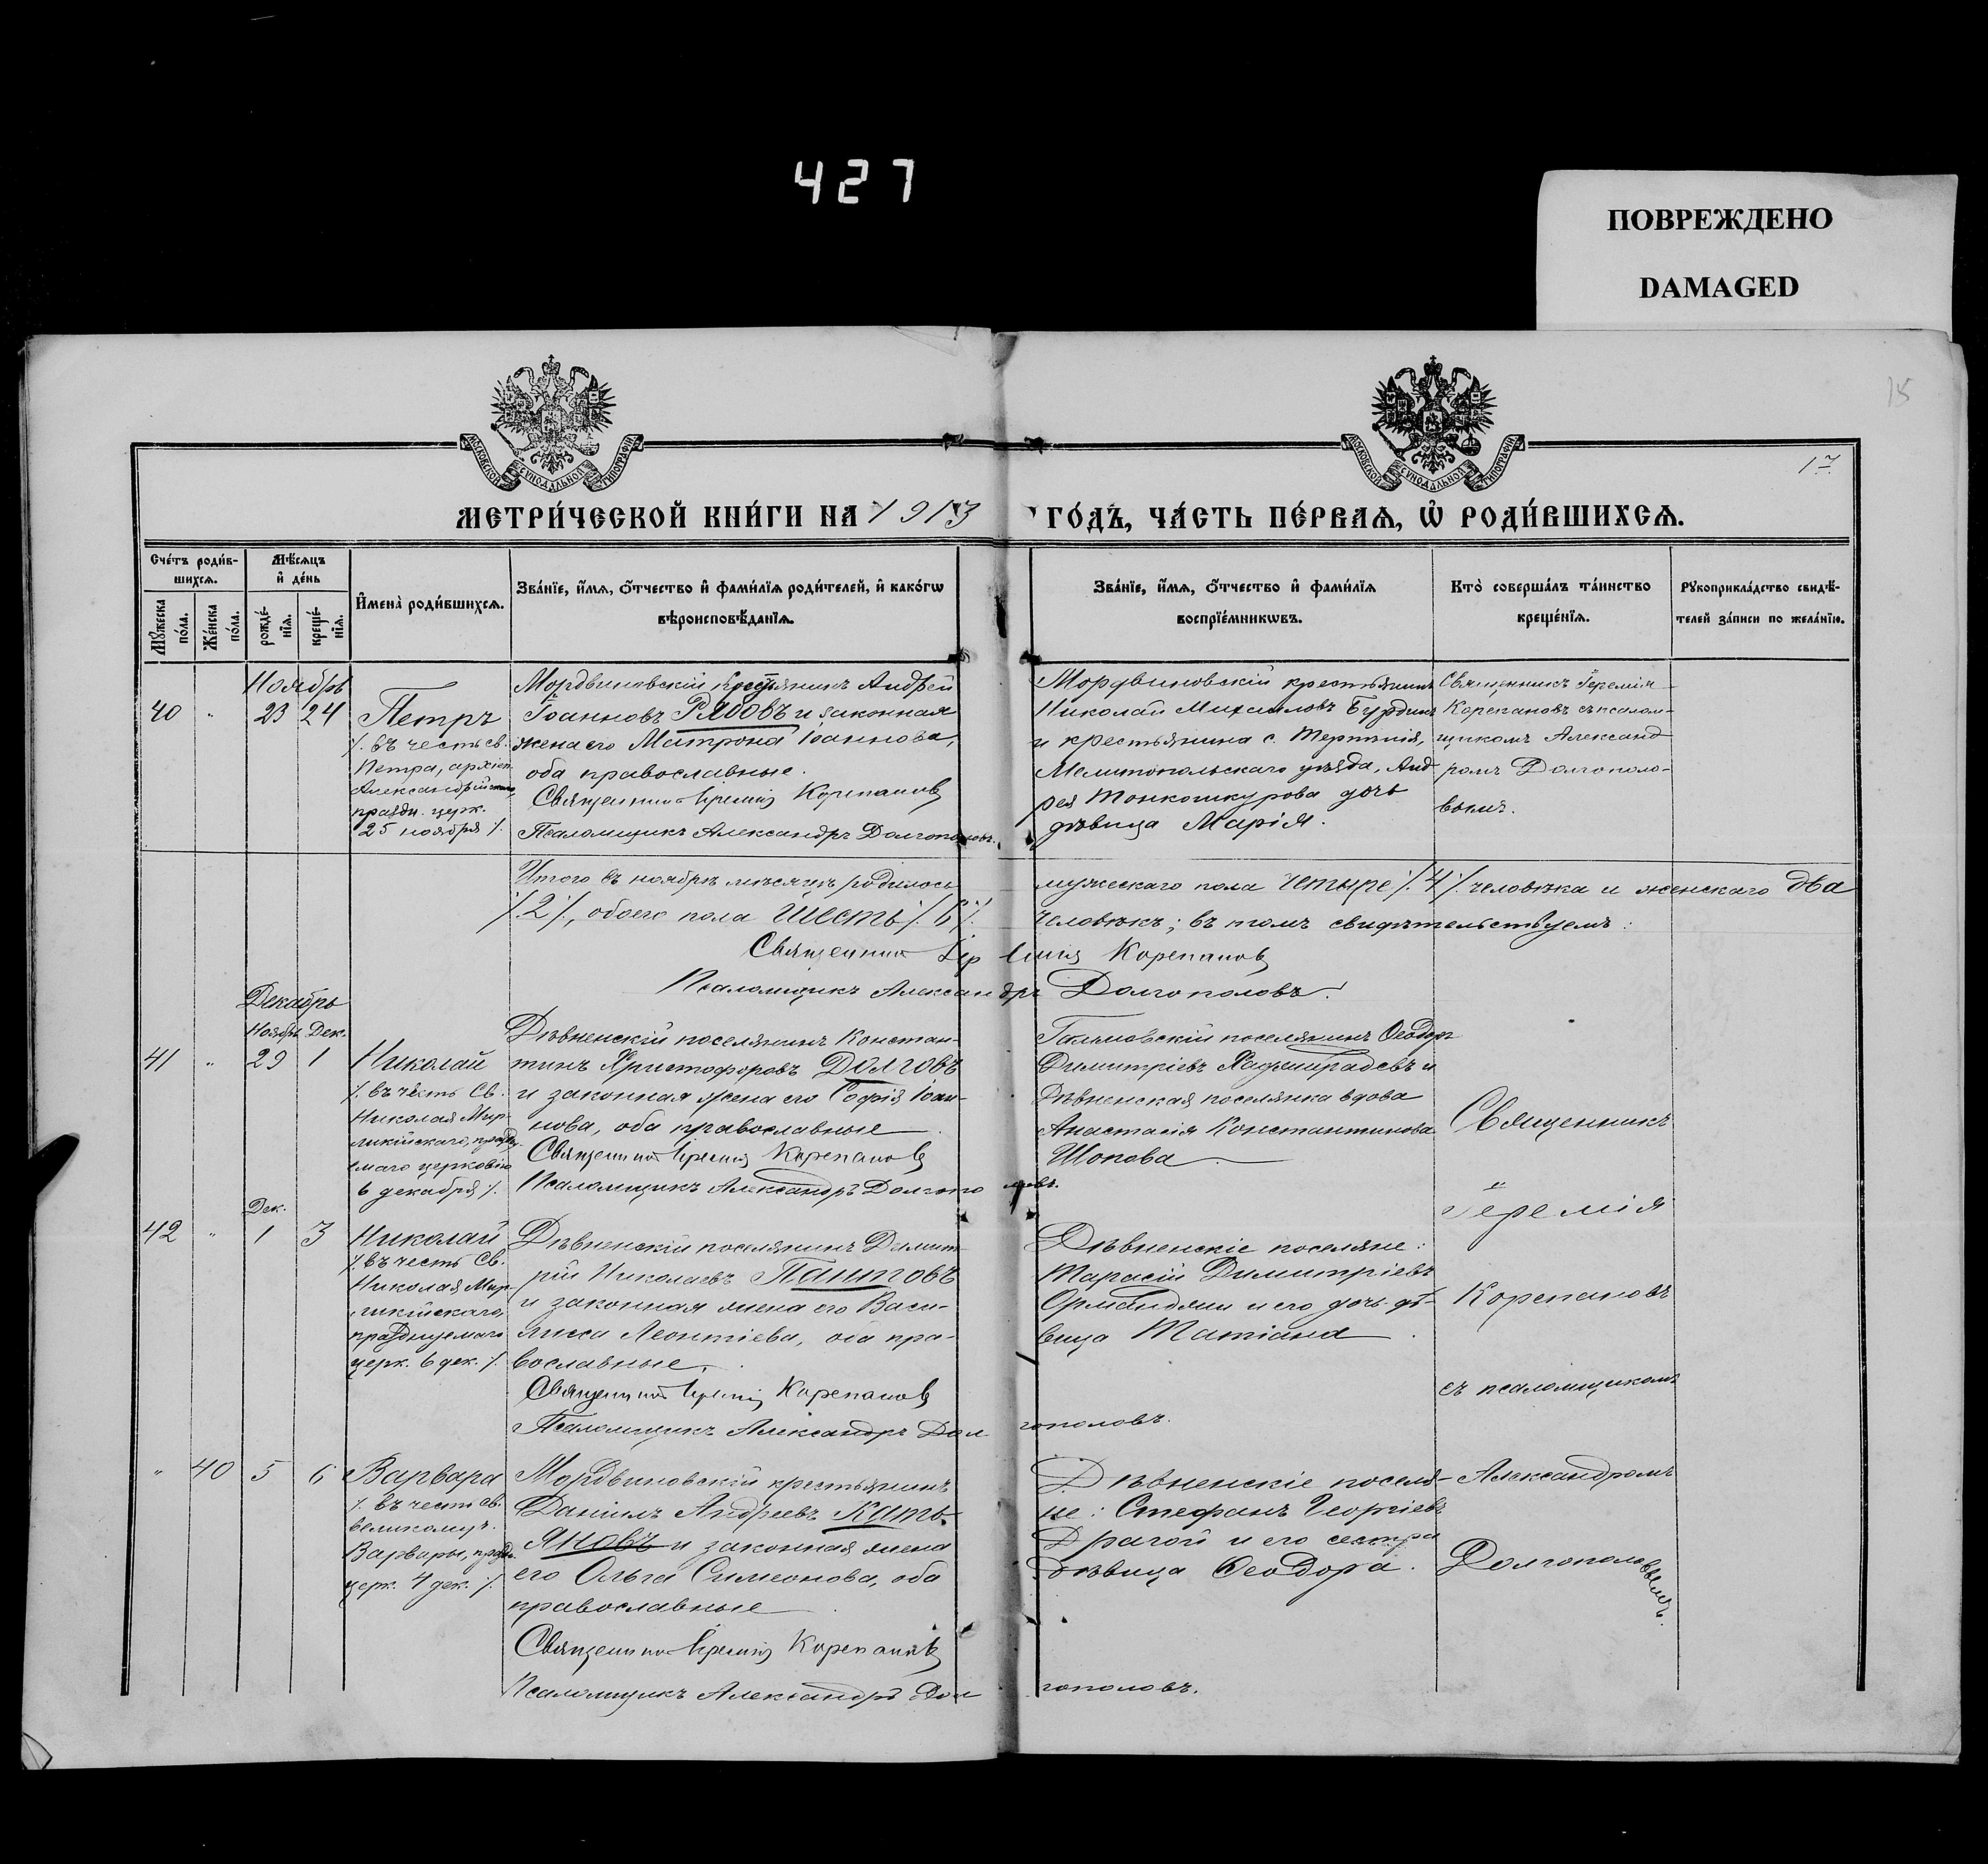 427
ПОВРЕЖДЕНО
DAMAGED
15
17
МОСКОВСКОЙ СѴНОДАЛЬНОЙ ТИПОГРАФІИ
МОСКОВСКОЙ СѴНОДАЛЬНОЙ ТИПОГРАФІИ
МЕТРИ́ЧЕСКОЙ КНИ́ГИ НА 1913 ГО́ДЪ, ЧА́СТЬ ПЕ́РВАѦ, Ѡ҆ РОДИ́ВШИХСѦ.
Сче́тъ роди́в-
шихсѧ.
Мꙋ́жеска по́ла.
Же́нска по́ла.
Мѣ́сѧцъ
и҆ де́нь
рожде́-
нїѧ.
креще́-
нїѧ.
И҆мена̀ роди́вшихсѧ.
Зва́нїе, и҆́мѧ, ѻ҆́тчество и҆ фами́лїѧ роди́телей, и҆ како́гѡ
вѣроисповѣ́данїѧ.
Зва́нїе, и҆́мѧ, ѻ҆́тчество и҆ фами́лїѧ
воспрїе́мникѡвъ.
Кто̀ соверша́лъ та́инство
креще́нїѧ.
Рꙋкоприкла́дство свидѣ́-
телей за́писи по жела́нїю.
Ноябрь
40 " 23 24
Петръ
/. въ честь св.
Петра, архіеп.
Александрійскаго,
праздн. церк.
25 ноября /.
Мордвиновскій крестьянинъ Андрей
Іоанновъ Рябовъ и законная
жена его Матрона Іоаннова,
оба православные.
Священникъ Іеремія Корепановъ
Псаломщикъ Александръ Долгополовъ.
Мордвиновскій крестьянинъ
Николай Михаиловъ Бурдинъ
и крестьянина с. Терпѣнія,
Мелитопольскаго уѣзда, Анд
рея Тонкошкурова дочь
дѣвица Марія.
Священникъ Іеремія
Корепановъ съ псалом-
щикомъ Александ
ромъ Долгополо-
вымъ.
Итого въ ноябрѣ мѣсяцѣ родилось мужескаго пола четыре /.4/. человѣка и женскаго два
/.2/., обоего пола шесть /.6/. человѣкъ; въ томъ свидѣтельствуемъ:
Священникъ Іеремія Корепановъ
Псаломщикъ Александръ Долгополовъ.
Декабрь
Ноябрь Дек.
41 " 29 1
Николай
/. въ честь Св.
Николая Мир-
ликійскаго, праздну
емаго церковію
6 декабря /.
Дѣвненскій поселянинъ Констан-
тинъ Христофоровъ Долговъ
и законная жена его Софія Іоан-
нова, оба православные
Священникъ Іеремія Корепановъ
Псаломщикъ Александръ Долгополовъ.
поселянинъ Ѳеодоръ
Димитріевъ Хаджирадевъ и
Дѣвненская поселянка вдова
Анастасія Константинова
Шопова
Священникъ
Іеремія
Корепановъ
съ псаломщикомъ
Александромъ
Долгополовымъ.
Дек.
42 " 1 3
Николай
/. въ честь Св.
Николая Мир-
ликійскаго,
празднуемаго
церк. 6 дек. /.
Дѣвненскій поселянинъ Димит-
рій Николаевъ Пантовъ
и законная жена его Васи-
лиса Леонтіева, оба пра-
вославные.
Священникъ Іеремія Корепановъ
Псаломщикъ Александръ Долгополовъ.
Дѣвненскіе поселяне:
Тарасій Димитріевъ
Орманджи и его дочь дѣ-
вица Татіана
" 40 5 6
Варвара
/. въ честь св.
великомуч.
Варвары, праздн.
церк. 4 дек. /.
Мордвиновскій крестьянинъ
Даніилъ Андреевъ Кать-
яновъ и законная жена
его Ольга Симеонова, оба
православные
Священникъ Іеремія Корепановъ
Псаломщикъ Александръ Долгополовъ.
Дѣвненскіе поселя-
не: Стефанъ Георгіевъ
Драгой и его сестра
дѣвица Ѳеодора.